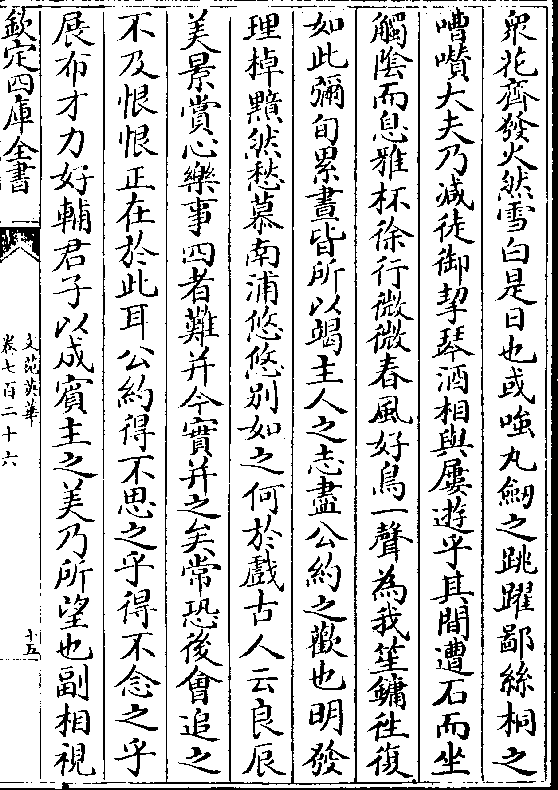 衆花齊發火然雪白是日也或嗤丸劒之跳躍鄙絲桐之
嘈囋大夫乃減徒御挈琴酒相與屢遊乎其間遭石而坐
觸陰而息雅杯徐行微微春風好鳥一聲為我笙鏞往復
如此彌旬累晝皆所以竭主人之志盡公約之歡也明發
理棹黯然愁慕南浦悠悠别如之何於戲古人云良辰
美景賞心樂事四者難并今實并之矣常恐後會追之
不及恨恨正在於此耳公約得不思之乎得不念之乎
展布才力好輔君子以成賓主之美乃所望也副相視
欽定四庫全書
文苑英華
卷七百二十六
十五